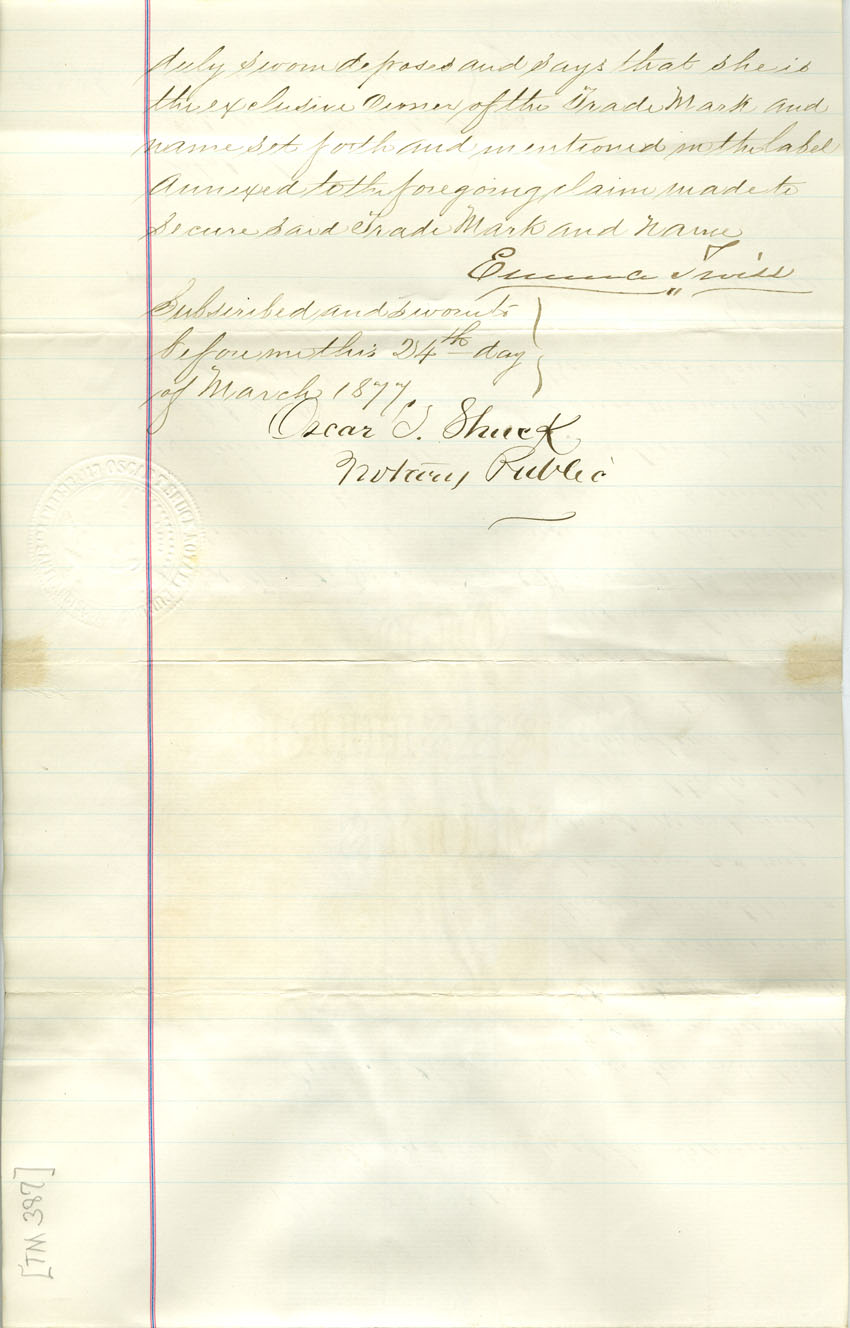 duly sworn deposes and says that she is
the exclusive Owner of the Trade Mark and
name set forth and mentioned in the label
Annexed to the foregoing claim made to
secure said Trade Mark and Name
Emma Twiss
Subscribed and sworn to
before me this 24th day
of March 1877
Oscar T. Shuck
Notary Public
[TM 387]